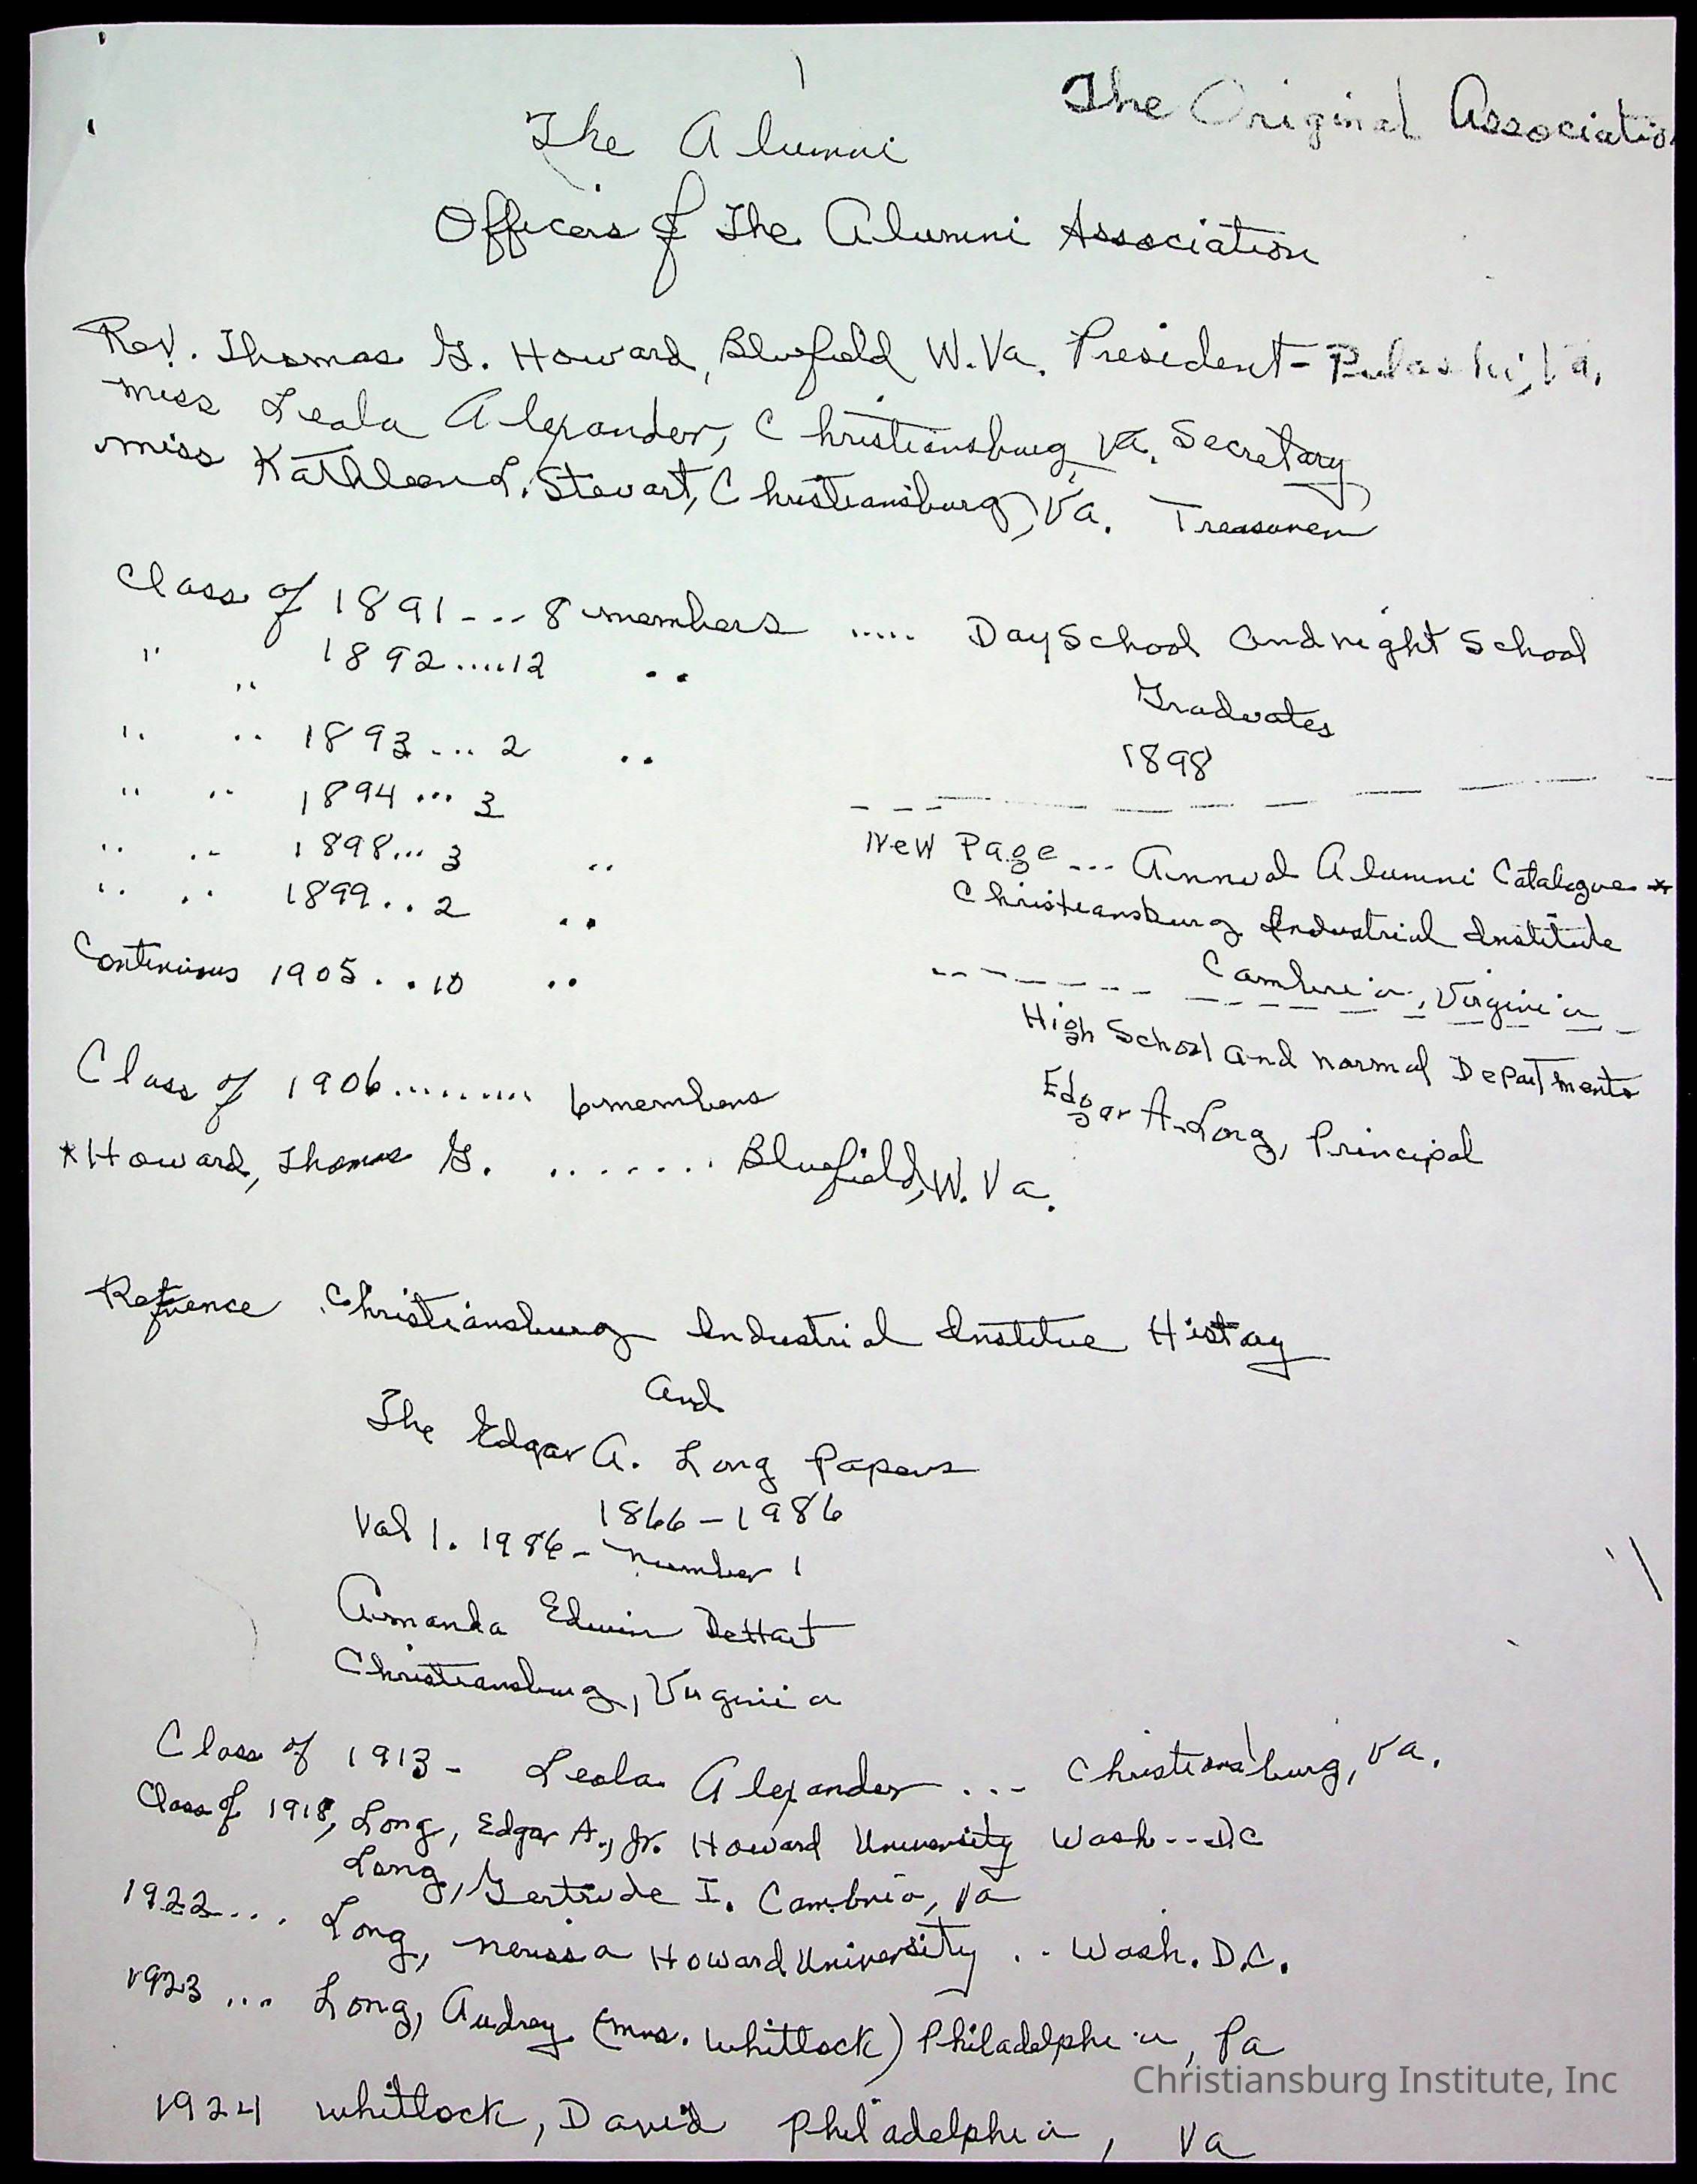 The Original Associatio
The Alumni
Officers of The Alumni Association
Rev. Thomas G. Howard, Bluefield W.Va. President - Pulaski, Va.
Miss Leola Alexander, Christiansburg, Va. Secretary
Miss Kathleen L. Stewart, Christiansburg, Va. Treasurer
Class of 1891 --- 8 members ..... Day School and night School
" " 1892.....12 "
Graduates
" " 1893 ... 2 "
1898
" " 1894 ... 3
" " 1898... 3 "
New Page ... Annual Alumni Catalogue *
" " 1899. . 2 "
Christiansburg Industrial Institute
Continious 1905. . 10 "
Cambria, Virginia
High School and normal Departments
Class of 1906......... 6 members
Edgar A. Long, Principal
*Howard, Thomas G. ........ Bluefield, W. Va.
Refrence Christiansburg Industrial Institue History
and
The Edgar A. Long Papers
1866 - 1986
Vol 1. 1986 - number 1
Amanda Edwin DeHart
Christiansburg, Virginia
Class of 1913 - Leola Alexander ... Christiansburg, Va.
Class of 1918, Long, Edgar A., Jr. Howard University Wash -- DC
Long, Gertrude I. Cambria, Va
1922.... Long, Nerissa Howard University .. Wash. D.C.
1923 ... Long, Audrey (Mrs. Whitlock) Philadelphia, Pa
1924 Whitlock, David Philadelphia, Va
Christiansburg Institute, Inc